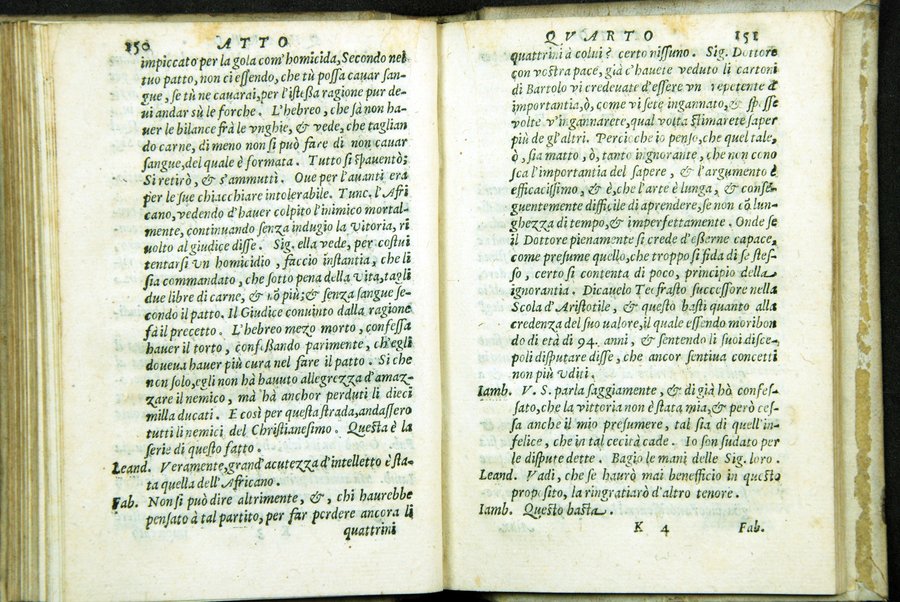 250 ATTO
impiccato per la gola com'homicida, Secondo nel
tuo patto, non ci essendo, che tù possa cauar san-
gue, se tù ne cauarai, per l'istessa ragione pur de-
ui andar sù le forche. L'hebreo, che sà non ha-
uer le bilance frà le vnghie, & vede, che taglian
do carne, di meno non si può fare di non cauar
sangue, del quale è formata. Tutto si spauentò;
Si retirò, & s'ammutì. Oue per l'auanti era
per le sue chiacchiare intolerabile. Tunc. l'Afri
cano, vedendo d'hauer colpito l'inimico mortal-
mente, continuando senza indugio la vitoria, ri
uolto al giudice disse. Sig. ella vede, per costui
tentarsi vn homicidio, faccio instantia, che li
sia commandato, che sotto pena della vita, tagli
due libre di carne, & nõ più; & senza sangue se-
condo il patto. Il Giudice conuinto dalla ragione
fà il precetto. L'hebreo mezo morto, confessa
hauer il torto, confessando parimente, ch'egli
doueua hauer più cura nel fare il patto. Si che
non solo, egli non hà hauuto allegrezza d'amaz-
zare il nemico, mà hà anchor perduti li dieci
milla ducati. E così per questa strada, andassero
tutti li nemici del Christianesimo. Questa è la
serie di questo fatto.
Leand. Veramente, grand'acutezza d'intelletto è sta-
ta quella dell'Africano.
Fab. Non si può dire altrimente, &, chi haurebbe
pensato à tal partito, per far perdere ancora li
quattrini
QVARTO 251
quattrini à colui è certo nissuno. Sig. Dottore
con vostra pace, già c'hauete veduto li cartoni
di Bartolo vi credeuate d'essere vn repetente d'
importantia, ò, come vi sete ingannato, & spesse
volte v'ingannarete, qual volta stimarete saper
più de gl'altri. Percioche io penso, che quel tale,
ò, sia matto, ò, tanto ingnorante, che non cono
sca l'importantia del sapere, & l'argumento è
efficacissimo, & è, che l'arte è lunga, & conse-
guentemente difficile di aprendere, se non cõ lun-
ghezza di tempo, & imperfettamente. Onde se
il Dottore pienamente si crede d'esserne capace,
come presume quello, che troppo si fida di se stes-
so, certo si contenta di poco, principio della
ignorantia. Dicauelo Teofrasto successore nella
Scola d'Aristotile, & questo basti quanto alla
credenza del suo ualore, il quale essendo moribon
do di età di 94. anni, & sentendo li suoi disce-
poli disputare disse, che ancor sentiua concetti
non più vditi.
Iamb. V. S. parla saggiamente, & di già hò confes-
sato, che la vittoria non è stata mia, & però ces-
sa anche il mio presumere, tal sia di quell'in-
felice, che in tal cecità cade. Io son sudato per
le dispute dette. Bagio le mani delle Sig. loro.
Leand. Vadi, che se haurò mai benefficio in questo
proposito, la ringratiarò d'altro tenore.
Iamb. Questo basta.
K 4 Fab.